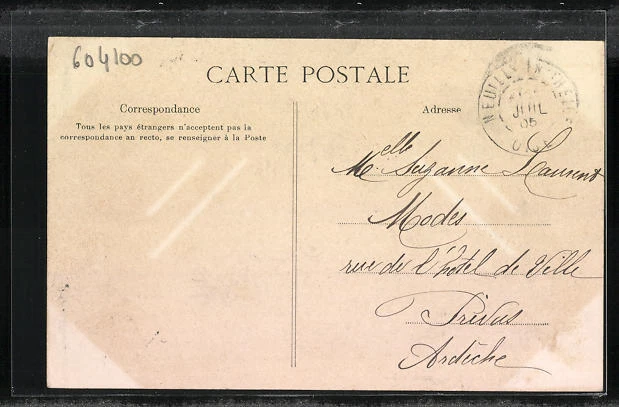 604100
CARTE POSTALE
Correspondance
Tous les pays étrangers n'acceptent pas la
correspondance au recto, se renseigner à la Poste
Adresse
NEUILLY
JUIL
05
OISE
Melle Suzanne Laurent
Modes
rue de l'hôtel de Ville
Privas
Ardèche